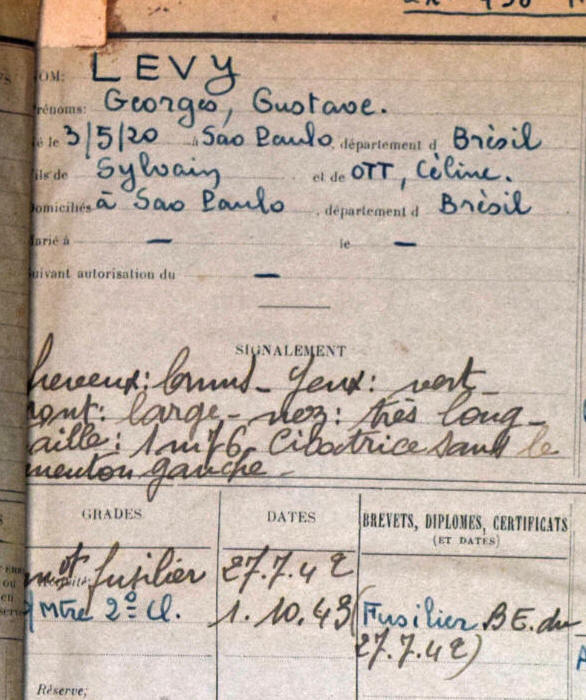 OM: LEVY
rénoms: Georges, Gustave.
é le 3/5/20 à Sao Paulo, département d Brèsil
ils de Sylvain et de OTT, Cèline.
omiciliés à Sao Paulo, département d Brèsil
arié à — le —
uivant autorisation du —
SIGNALEMENT
heveux: bruns - Yeux: vert -
ront: large - nez: très long -
aille: 1m76. Cicatrice sous le
menton gauche -
GRADES DATES BREVETS, DIPLOMES, CERTIFICATS
(ET DATES)
mot fusilier 27.7.42
Mtre 2e Cl. 1.10.43 (Fusilier BE. du
27.7.42)
Réserve;